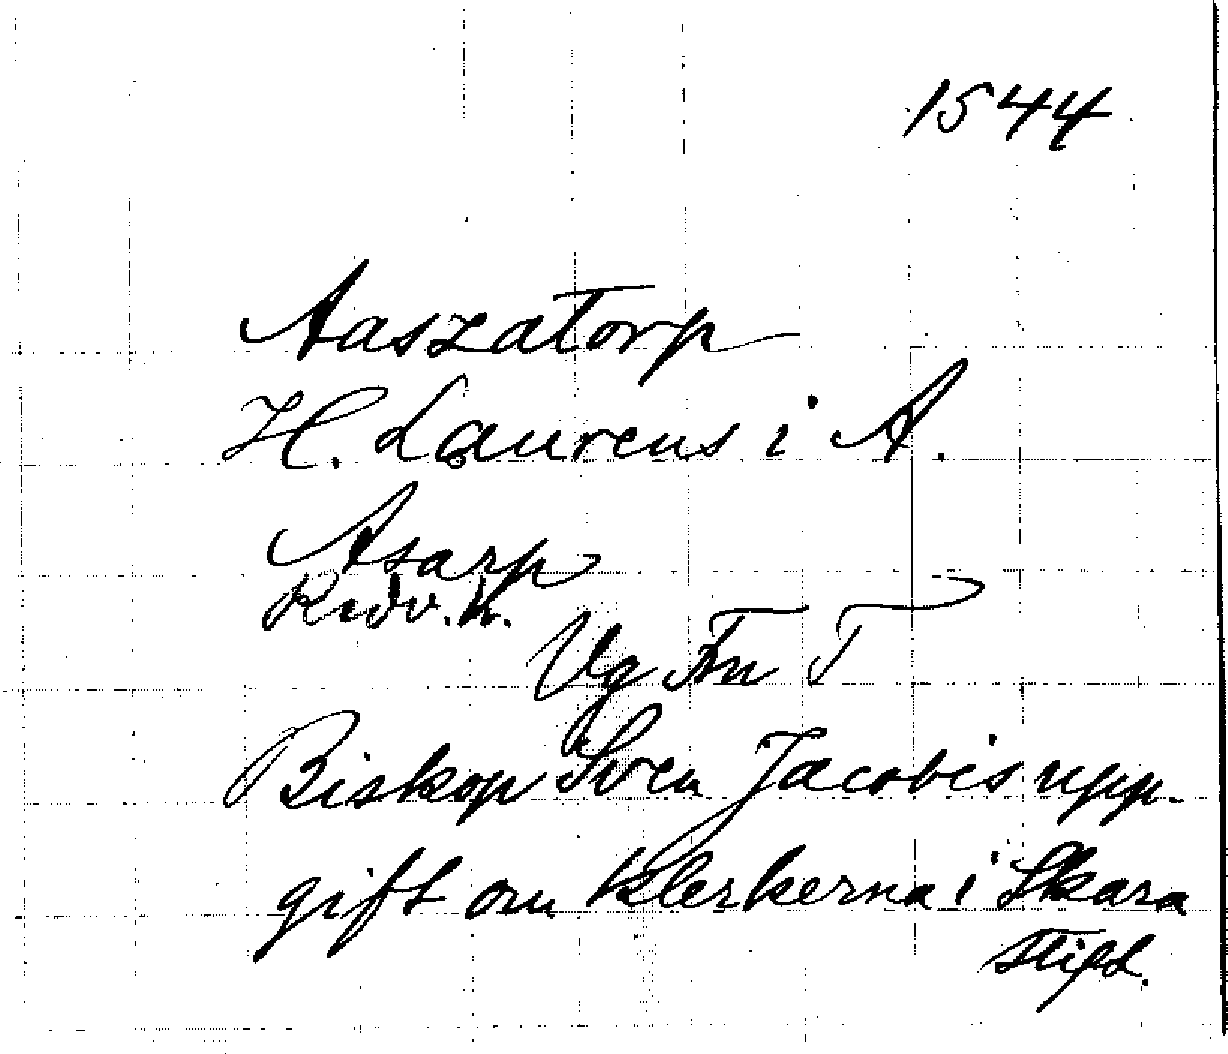 1544
Aaszatorp
H. Laurens i A.
Asarp
Redv. h.
Vg Fm T
Biskop Sven Jacobis upp-
gift om klerkerna i Skara
stift.